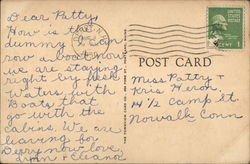 Dear Patty,
How is the
dummy I can
row a boat now
we are staying
right by fresh
waters with
Boats that
go with the
cabins. We are
leaving for
Derry now love,
Ann + Eleanor
POST CARD
Miss Patty +
Kris Heron
14 1/2 Camp St.
Norwalk Conn
UNITED STATES
POSTAGE
1 CENT 1